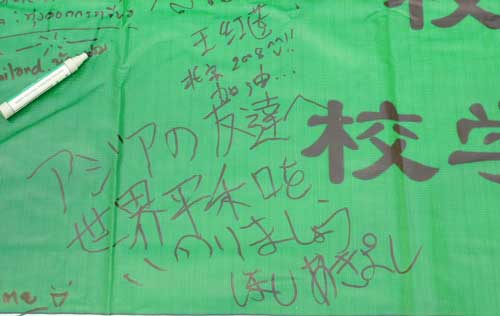 王红莲
北京 2008 !!
加油...
アジアの友達へ
世界平和を
いのりましょう
ほしあきよし
校学
me